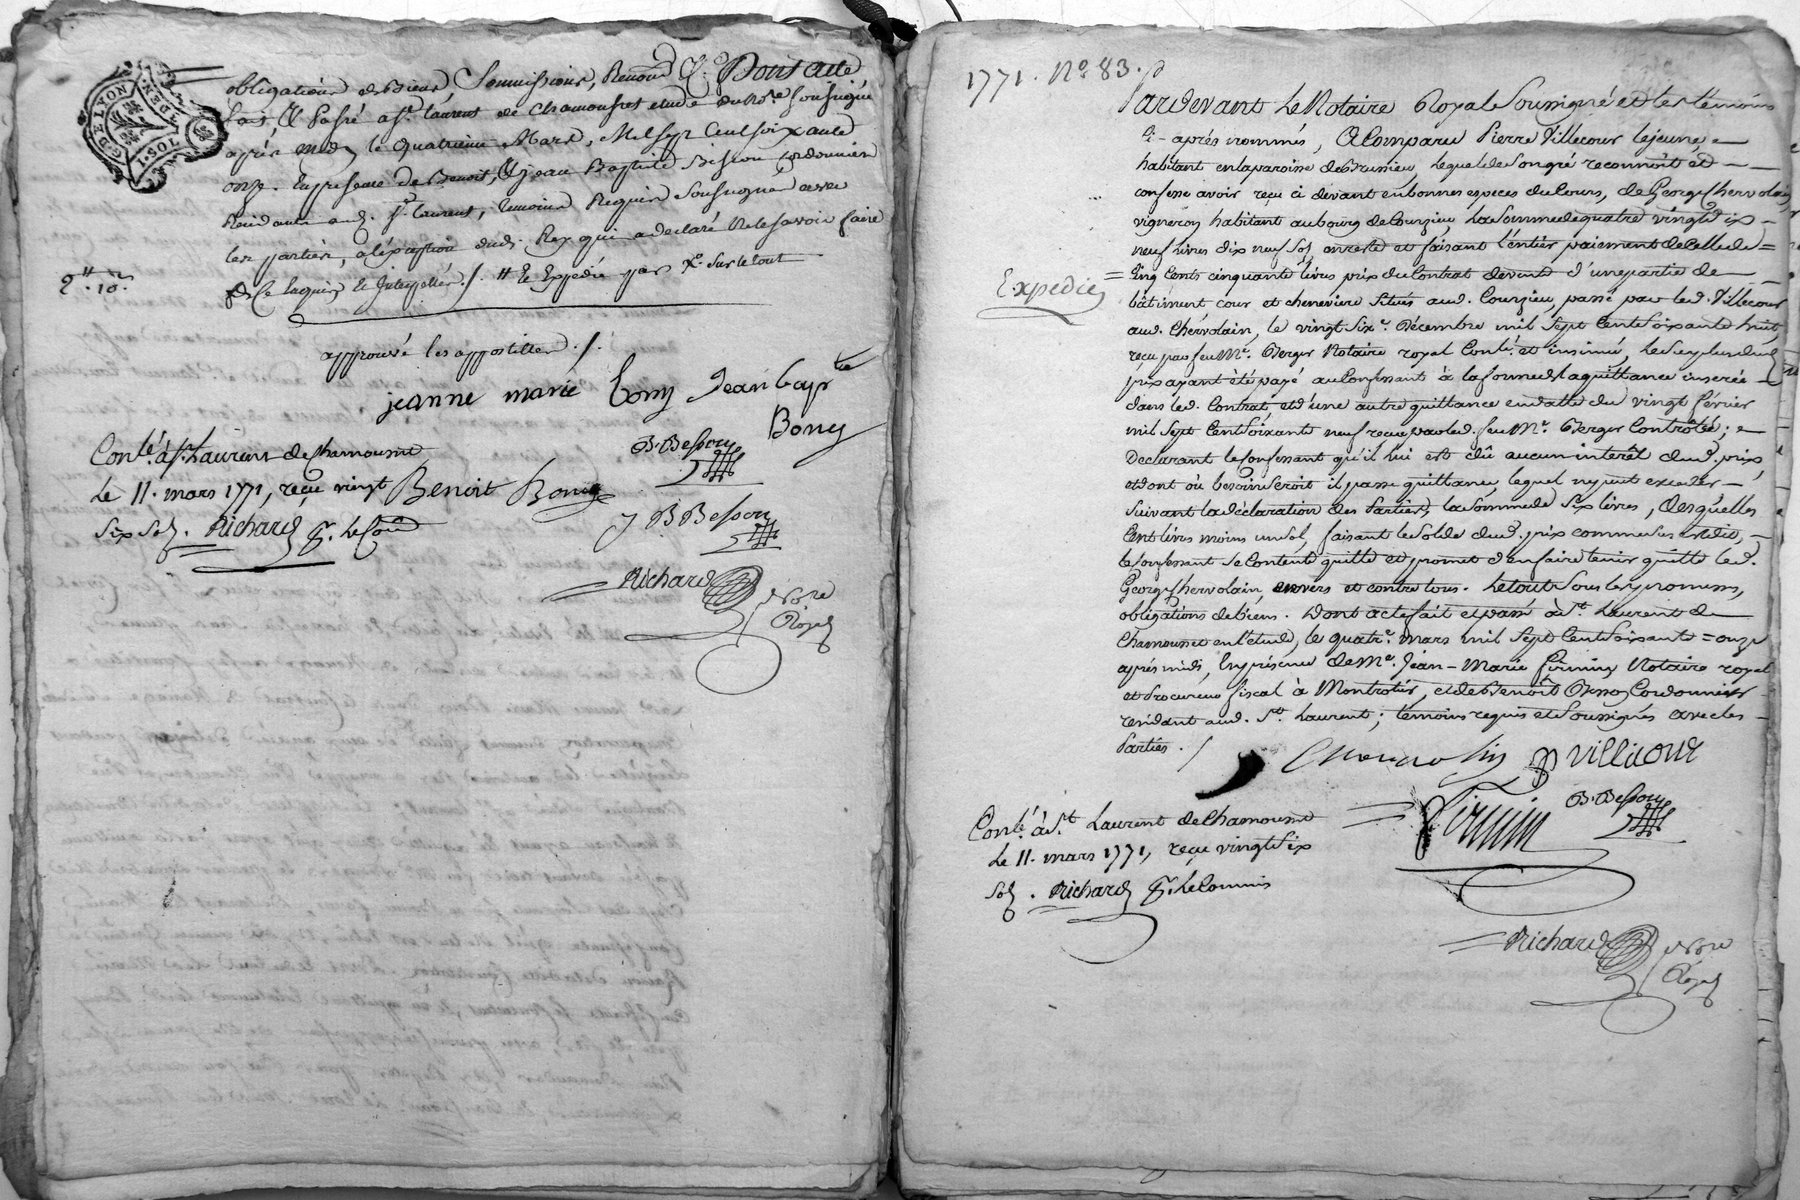 G. DE LYON
GEN.
1. SOL
obligations de Biens, Soumissions, Renon.on &.a Dont acte
fait & Passé à S.t Laurent de Chamousset etude du No.re soussigné
après midy le quatrieme Mars, Mil sept Cent soixante
onze. En presence de Benoit, & jean Baptiste Besson Cordonnier
Residants aud. S.t Laurent, temoins Requis Soussignés avec
les parties, à l'exception dud. Rey qui a declaré ne le savoir faire
de ce Enquis & Interpellé. /. # Et Expedié par X.e sur le tout
2.# 10.s
approuvé les appostilles ./.
jeanne marie bony Jean bap.tte
Bony
Conle. à S.t Laurent de Chamousset
B. Besson
Le 11. mars 1771, reçu vingt
Benoit Bony
Six Sols. Richard p.r le Com.
J B Besson
Richard No.re
Royal
1771. N.o 83.
Pardevant Le Notaire Royal Soussigné et les témoins
Ci-après nommés, A Comparu Pierre Villecour le jeune
habitant en la paroisse de Brussieu, lequel de son gré reconnoit et
confesse avoir reçu ci devant en bonnes especes du Cours, de George Chervolain,
vigneron habitant au bourg de Courzieu, la somme de quatre vingt dix
neuf livres dix neuf sols, en reste et faisant l'entier paiement de celle de
Cinq Cents cinquante livres prix du Contrat de vente d'une partie de
Expedié
bâtiment cour et cheneviere Situés aud. Courzieu, passé par led. Villecour
aud. Chervolain, le vingt Six.e Décembre mil Sept Cent Soixante huit,
reçu par feu M.e Berger Notaire royal Conle. et insinué, le surplus dud.
prix ayant été payé au Confessant à la forme de la quittance inserée
dans led. Contrat, et d'une autre quittance en datte du vingt février
mil Sept Cent Soixante neuf reçue par led. feu M.e Berger Contrôlée;
Declarant le Confessant qu'il lui est dû aucun intérêt dud. prix
et dont où besoin Seroit il passe quittance, lequel n'peut exceder
Suivant la déclaration des Parties, la Somme de Six livres, desquelles
Cent livres moins un Sol, faisant le Solde dud. prix comme sus est dit,
le Confessant Se Contente quitte et promet d'en faire tenir quitte led.
George Chervolain envers et contre tous. Le tout Sous les promesses,
obligations de biens. Dont acte fait et passé à S.t Laurent de
Chamousset en l'etude, le quatr.e mars mil Sept Cent Soixante = onze
après midi, En présence de M.e Jean-Marie Firmin Notaire royal
et Procureur fiscal à Montrotier, et de Benoit Besson Cordonnier
résidant aud. S.t Laurent; témoins requis et Soussignés avec les
Parties. /.
Chervolin P Villicour
Firmin B. Besson
Conle. à S.t Laurent de Chamousset
Le 11. mars 1771, reçu vingt Six
Sols. Richard p.r le Commis
Richard No.re
Royal